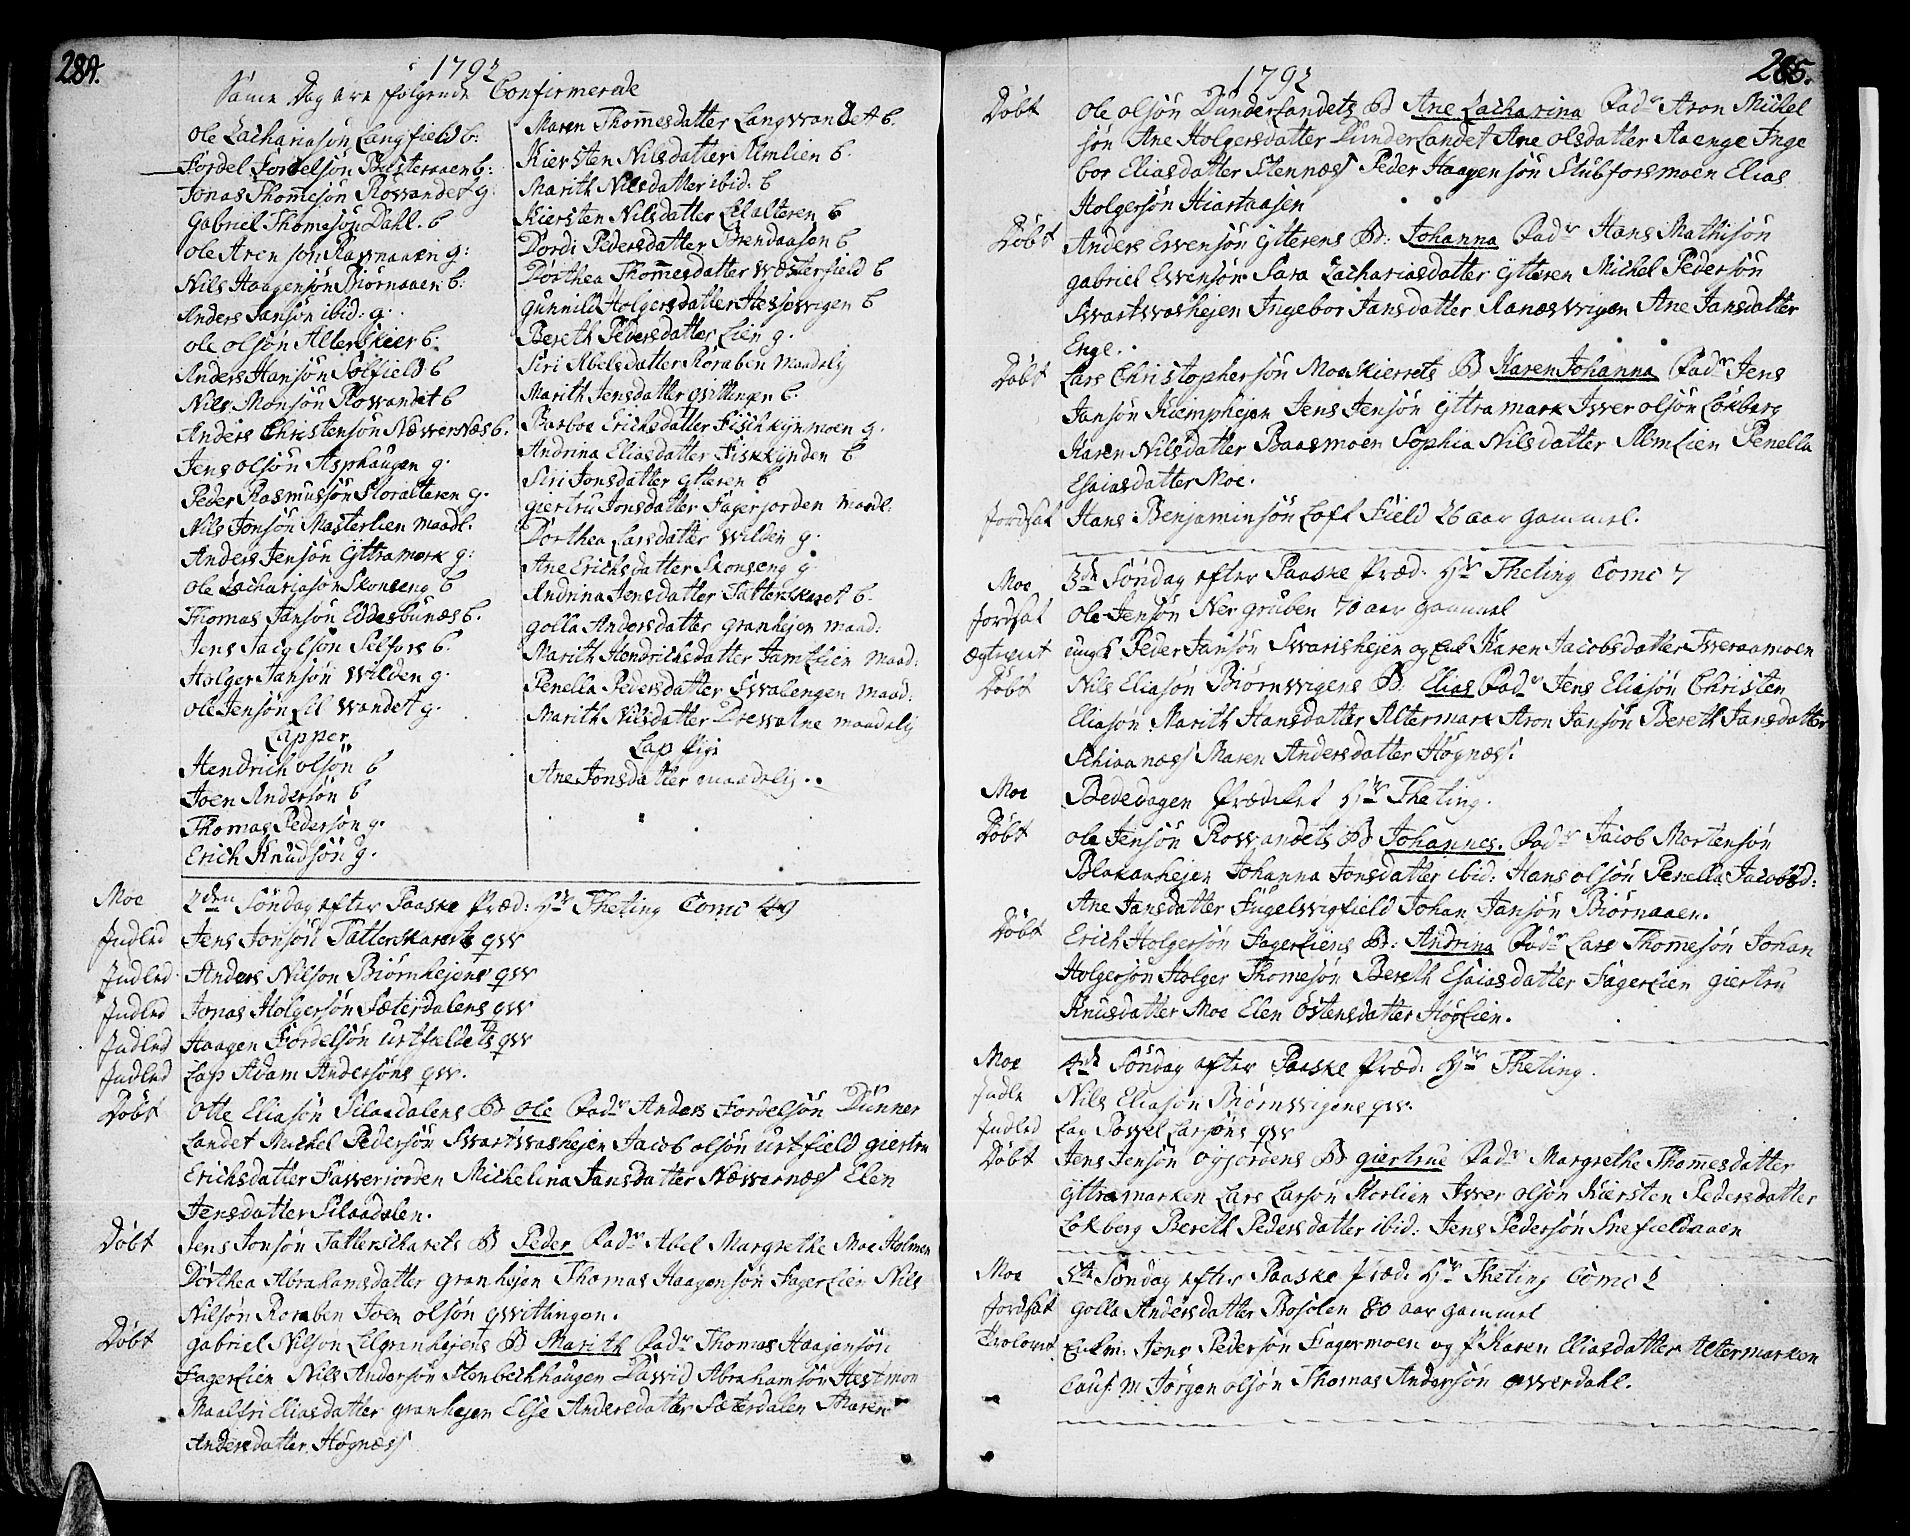 284.
1792
Same Dag ere følgende Confirmerede
Ole Zachariasøn Langfield b:
Fordel Fordelsøn Busteraaen b:
Jonas Thomesøn Røsvandet g:
Gabriel Thomesøn Dahl. b
Ole Aren søn Ravnaaen g:
Nils Haagensøn Biørnaaen b:
Anders Jansøn ibid: g.
Ole Olsøn Alterskier b:
Anders Hansøn Sølfield b
Nils Monsøn Røsvandet b
Anders Christensøn Næsvernæs b.
Jens Olsøn Asphaugen g.
Peder Rasmussøn Storalteren g.
Nils Jonsøn Masterlien maadl.
Anders Jensøn Yttramork g:
Ole Zachariasøn Skonseng b
Thomas Jansøn Eddesbunæs b.
Jens Jacobsøn Selfors b.
Holger Jansøn Wilden g.
Ole Jensøn Lil Wandet g.
Lapper
Hendrich Olsøn b
Joen Andersøn b
Thomas Pedersøn g.
Erich Knudsøn g.
Maren Thomesdatter Langvandet b.
Kiersten Nilsdatter Almlien b.
Marith Nilsdatter ibid: b
Kiersten Nilsdatter Lilalteren b
Dordi Pedersdatter Brendaasen b
Dorthea Thomesdatter Wæsterfield b
Gunnild Holgersdatter Hessiovigen b
Bereth Pedersdatter Lien g.
Siri Abelsdatter Roraben maadelig
Marith Jensdatter Qvittingen b.
Barboe Erichsdatter Fischkynmoen g.
Andrina Eliasdatter Fiskkynden b
Siri Jonsdatter Ytteren b
Giertru Jonsdatter Fagerjorden maadl.
Dorthea Larsdatter Wilden g.
Ane Erichsdatter Skonseng g.
Andrina Jensdatter Tatterskaret b.
Golla Andersdatter Granhejen maad:
Marith Hendrichsdatter Jamtlien maad:
Penella Pedersdatter Svalengen maad:
Marith Nilsdatter Drevatne maadelig
Lap Pige
Ane Jonsdatter maadelig.
Moe 2den Søndag efter Paaske Præd: Hr Theting Comc 49
Indled Jens Jonsøn Tatterskarets qvv
Indled Anders Nilsøn Biørnhejens qvv
Indled Jonas Holgersøn Sæterdalens qvv
Indled Haagen Fordelsøn Urtfieldets qvv
Indled Lap Adam Andersøns qvv.
Døbt Otte Eliasøn Silaadalens B Ole Fadr Anders Fordelsøn Dunner
Landet Michel Pedersøn Svartvashejen Jacob Olsøn Urtfield Giertru
Erichsdatter Favveriorden Michelina Jansdatter Næsvernæss Elen
Jensdatter Silaadalen.
Døbt Jens Jonsøn Tatterskarets B Peder Fadr Abel Margrethe Moe Holmen
Dorthea Abrahamsdatter Granhejen Thomas Haagensøn Fagerlien Nils
Nilsøn Roraben Joen Olsøn Qvittingen.
Døbt Gabriel Nilsøn Lilgranhejens B Marith Fadr Thomas Haagensøn
Fagerlien Nils Andersøn Stenbechhaugen David Abrahamsøn Hestmon
Maalfri Eliasdatter Granhejen Else Andersdatter Sæterdalen Maren
Andersdatter Høgnæss
285.
1792
Døbt Ole Olsøn Dunderlandets B Ane Zacharina Fadr Aron Michel
søn Ane Holgersdatter Dunderlandet Ane Olsdatter Aaenge Inge
bor Eliasdatter Stennæss Peder Haagensøn Stubforsmoen Elias
Holgersøn Hiartaasen
Døbt Anders Evensøn Ytterens B: Johanna Fadr Hans Mathisøn
Gabriel Evensøn Sara Zachariasdatter Ytteren Michel Pedersøn
Svartvashejen Ingebor Jansdatter Ranesvigen Ane Jansdatter
Enge.
Døbt Lars Christophersøn Moeskierrets B Karen Johanna Fadr Jens
Jansøn Kiemphejen Jens Jensøn Yttramark Iver Olsøn Løkberg
Karen Nilsdatter Baasmoen Sophia Nilsdatter Almlien Penella
Esaiasdatter Moe.
Jordsat Hans Benjaminsøn Loft Field 26 aar gammel.
Moe 3de Søndag efter Paaske Præd: Hr Theting Comc 7
Jordsat Ole Jensøn Nergruben 70 aar gammel
Ægteviet Ungk Peder Jansøn Svarishejen og Karen Jacobsdatter Tveraamoen
Døbt Nils Eliasøn Biørnvigens B. Elias Fadr Jens Eliasøn Christen
Eliasøn Marith Hansdatter Altermark Aron Jansøn Bereth Jansdatter
Schiaanæss Maren Andersdatter Høgnæss.
Moe Bededagen Prædiket Hr Theting.
Døbt Ole Jensøn Røsvandets B Johannes. Fadr Jacob Mortensøn
Blakaahejen Johanna Jonsdatter ibid: Hans Olsøn Penella Jacobsd:
Ane Jansdatter Fugelvigfield Johan Jansøn Biørnaaen.
Døbt Erich Holgersøn Fagerliens B: Andrina Fadr Lars Thomesøn Johan
Holgersøn Holger Thomesøn Bereth Esaiasdatter Fagerlien Giertru
Knusdatter Moe Elen Østensdatter Høglien.
Moe 4de Søndag efter Paaske Præd: Hr Theting.
Indle Nils Eliasøn Biørnvigens qvv.
Indled Lap Povel Larsøns qvv
Døbt Jens Jensøn Ogjordens B Giertrue Fadr Margrethe Thomesdatter
Yttramarken Lars Larsøn Storlien Iver Olsøn Kiersten Pedersdatter
Løkberg Bereth Pedersdatter ibid: Jens Pedersøn Snefieldaaen
Moe 5te Søndag efter Paaske Præd: Hr Theting Comc 2
Jordsat Golla Andersdatter Rosolen 80 aar gammel
Trolovet Enkm: Jens Pedersøn Fagermoen og P Karen Eliasdatter Altermarken
Cauf: M Jørgen Olsøn Thomas Andersøn Qverdahl.